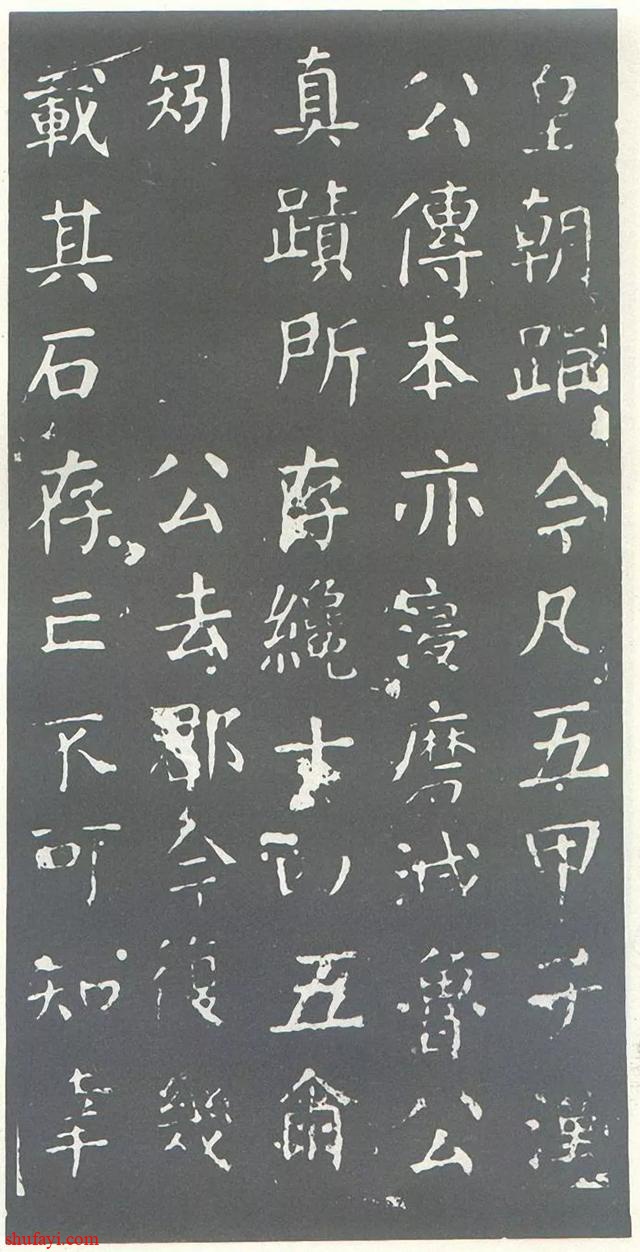 皇朝今凡五甲子漢
公傳本亦寖磨滅魯公
真蹟所存纔五
矧 公去郡今復幾
載其石存亡不可知幸
shufayi.com